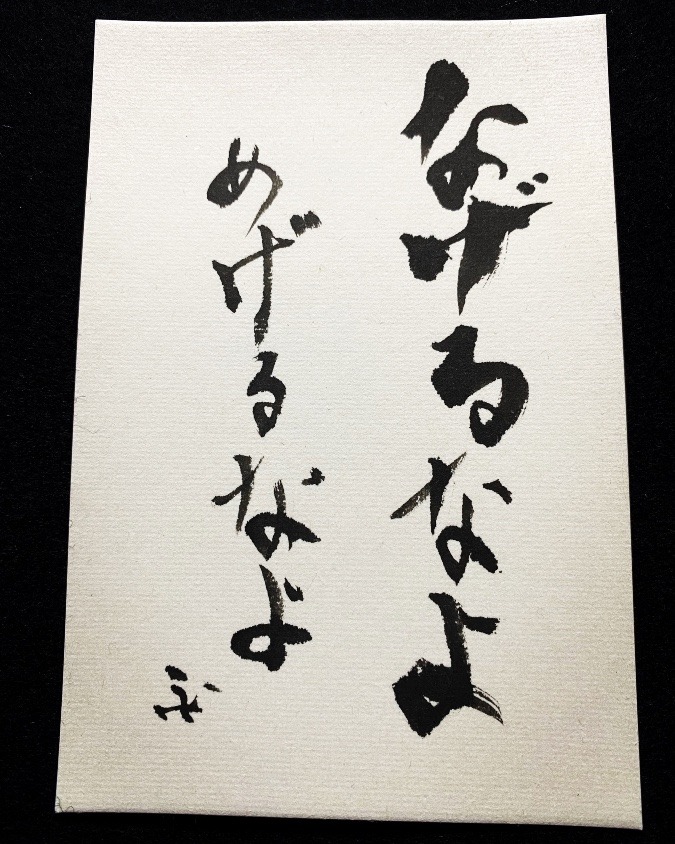 なげるなよ
めげるなよ